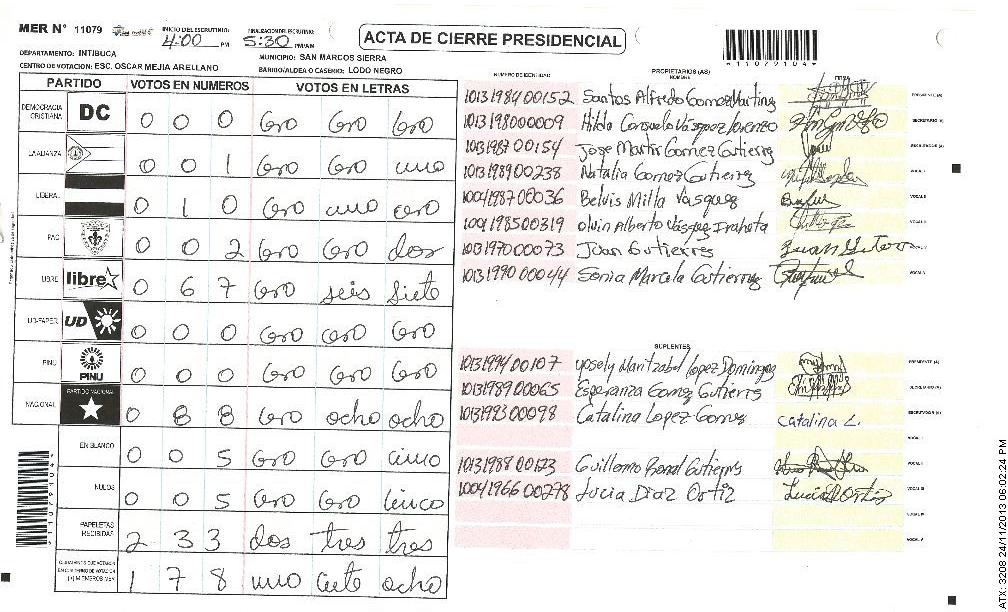 MER N° 11079
INICIO DEL ESCRUTINIO: 4:00 PM
FINALIZACION DEL ESCRUTINIO: 5:30 PM/AM
ACTA DE CIERRE PRESIDENCIAL
11079104
DEPARTAMENTO: INTIBUCA
MUNICIPIO: SAN MARCOS SIERRA
CENTRO DE VOTACION: ESC. OSCAR MEJIA ARELLANO
BARRIO/ALDEA O CASERIO: LODO NEGRO
PARTIDO VOTOS EN NUMEROS VOTOS EN LETRAS
DEMOCRACIA CRISTIANA DC 0 0 0 Cero Cero Cero
LA ALIANZA 0 0 1 Cero Cero uno
LIBERAL 0 1 0 Cero uno cero
PAC 0 0 2 Cero Cero dos
LIBRE libre 0 6 7 Cero seis siete
UD-FAPER UD 0 0 0 Cero cero Cero
PINU PINU 0 0 0 Cero Cero Cero
NACIONAL PARTIDO NACIONAL 0 8 8 Cero ocho ocho
EN BLANCO 0 0 5 Cero Cero cinco
NULOS 0 0 5 Cero Cero cinco
PAPELETAS RECIBIDAS 2 3 3 dos tres tres
1 7 8 uno siete ocho
NUMERO DE IDENTIDAD PROPIETARIOS (AS) NOMBRE FIRMA
1013198400152 Santos Alfredo Gomez Martinez PRESIDENTE (A)
1013198000009 Hilda Consuelo Vásquez Lorenzo SECRETARIO (A)
1013198700154 Jose Martir Gomez Gutierrez ESCRUTADOR (A)
1013198900238 Natalia Gomez Gutierrez VOCAL I
1004198700036 Belvis Milla Vasquez VOCAL II
1001198500319 olvin Alberto Vásquez Iraheta
1013197000073 Juan Gutierres Juan Gutierr
1013199000044 Sonia Marcela Gutierrez
SUPLENTES
1013199400107 yosely Maritzabel Lopez Dominguez PRESIDENTE (A)
1013198900065 Esperanza Gomez Gutierris SECRETARIO (A)
1013199200098 Catalina Lopez Gomez catalina L. ESCRUTADOR (A)
VOCAL I
1013198800123 Guillermo Gutierrez VOCAL II
1004196600278 Lucia Diaz Ortiz Lucia D Ortiz VOCAL III
VOCAL IV
VOCAL V
ATX: 3208 24/11/2013 06:02:24 PM